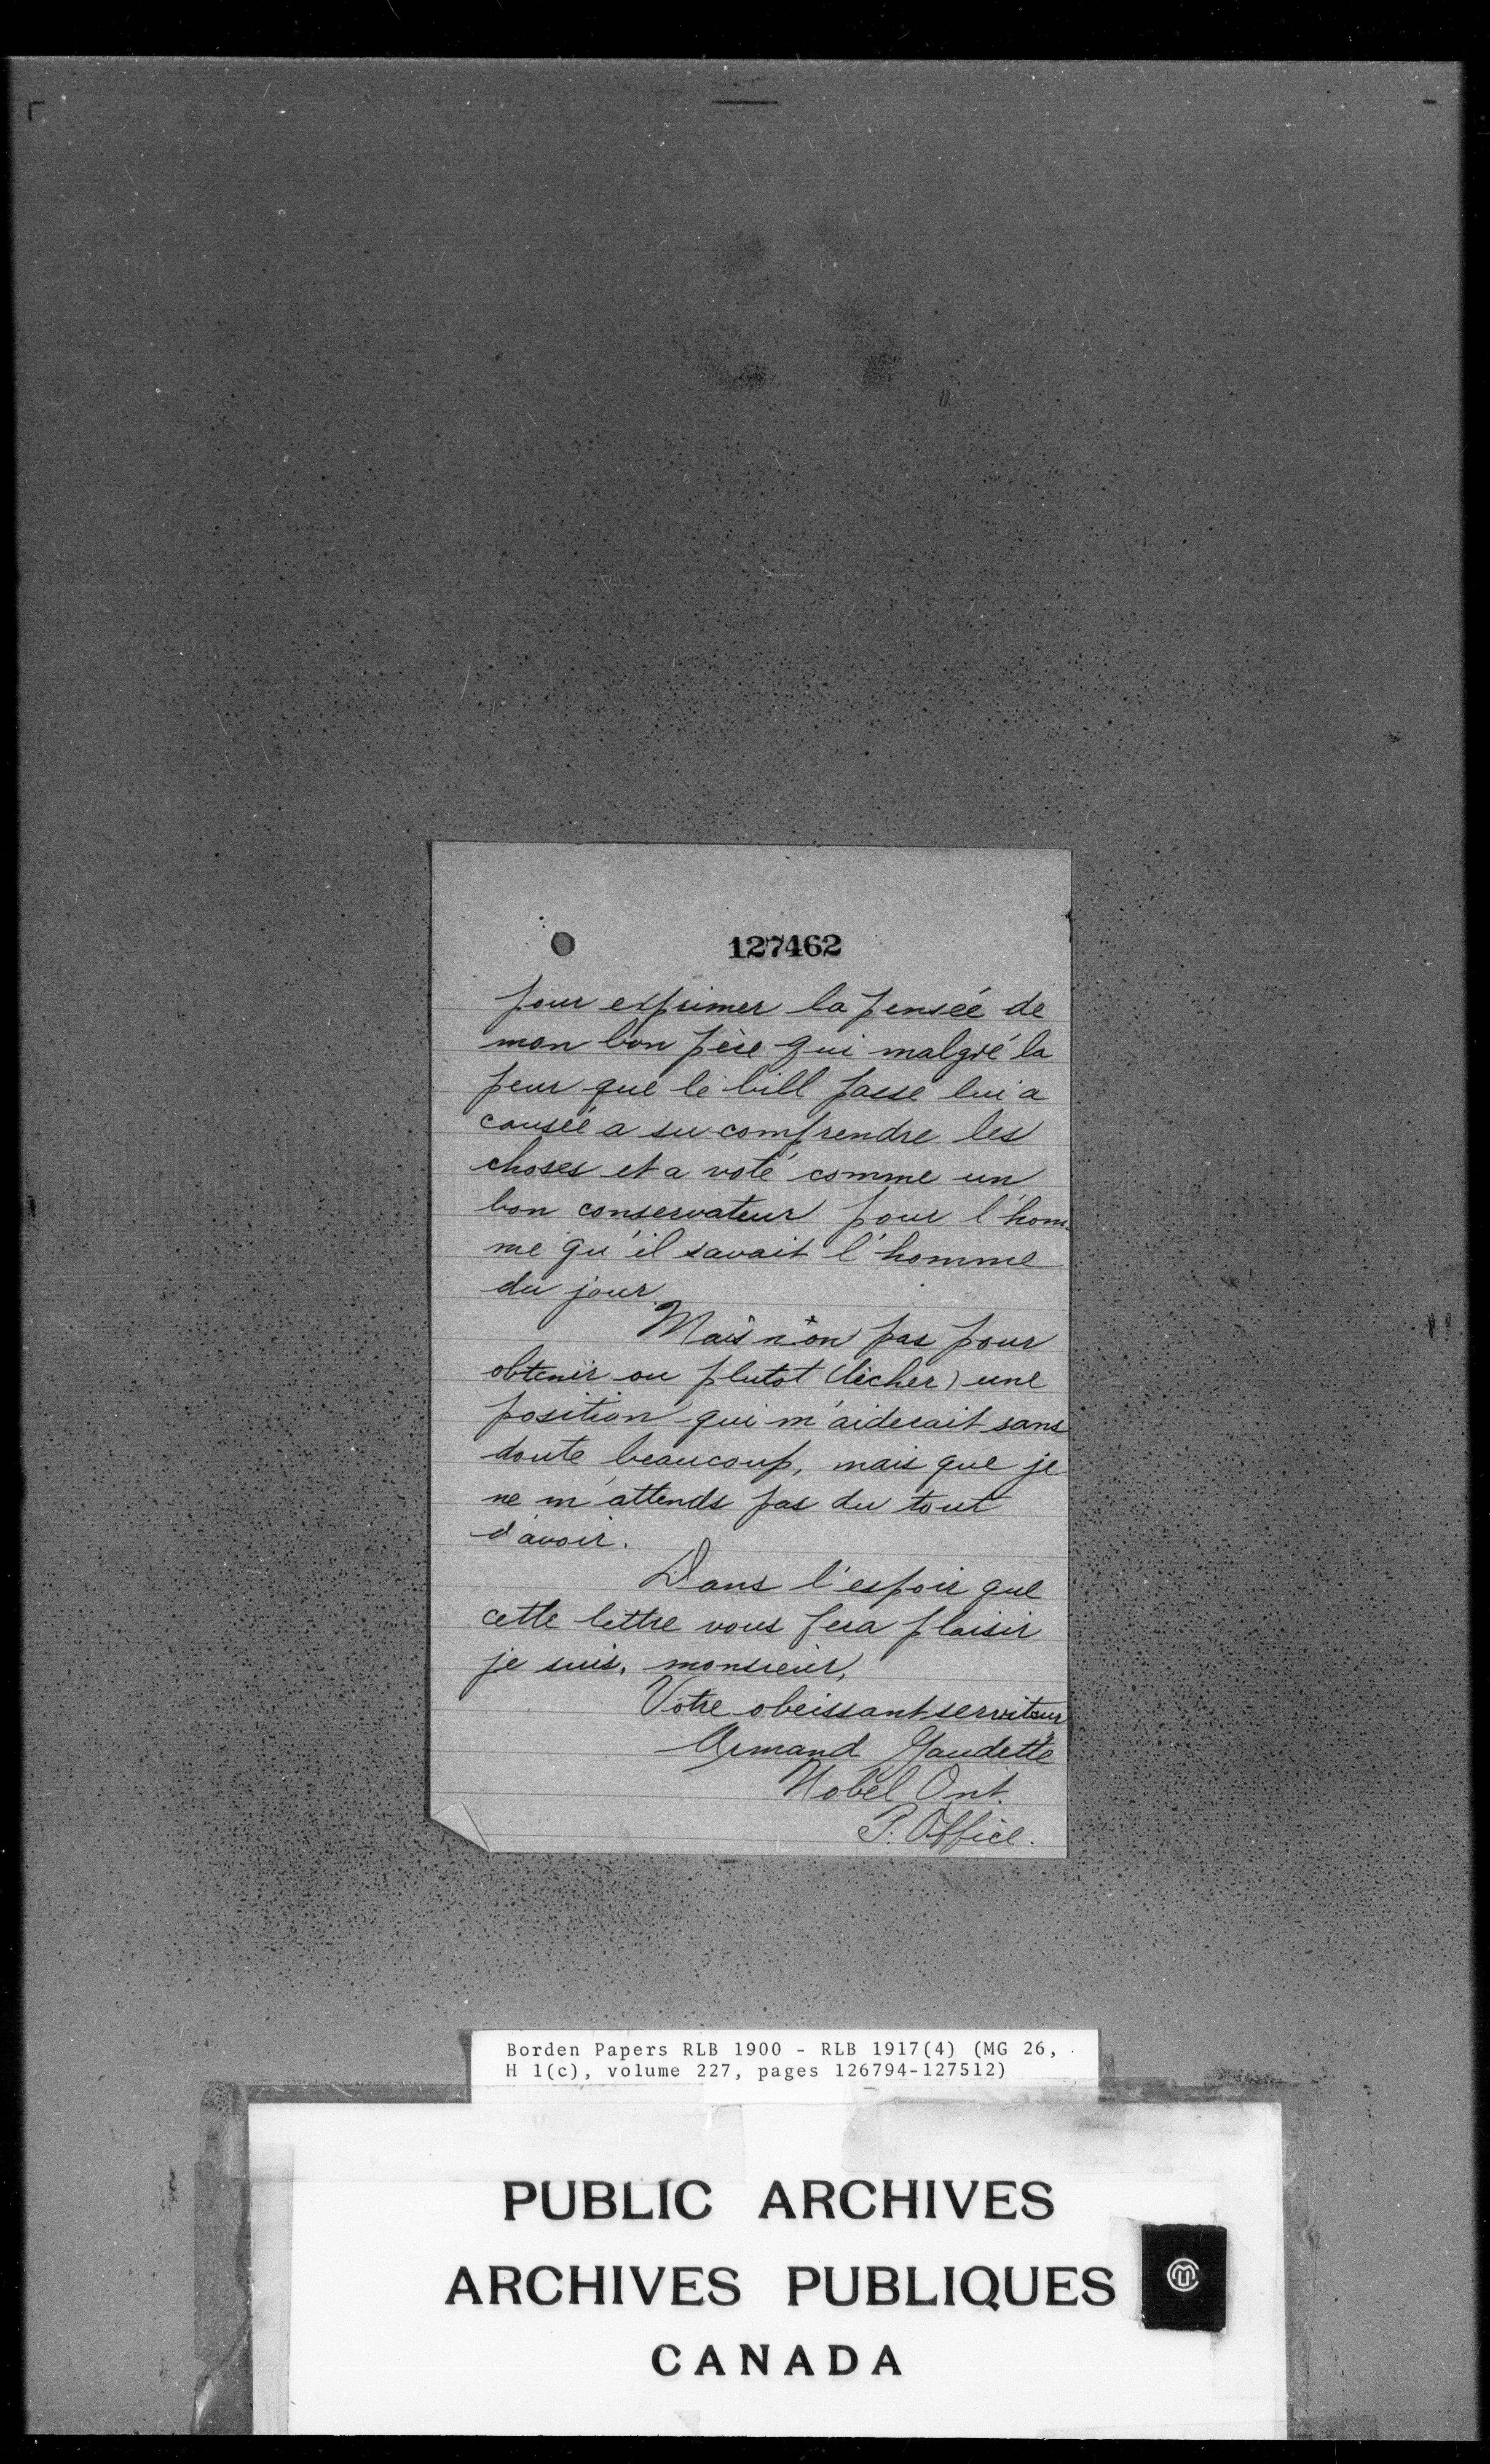 127462
pour exprimer la pensée de
mon bon père qui malgré la
peur que le bill passe lui a
causée a su comprendre les
choses et a voté comme un
bon conservateur pour l'hom-
me qu'il savait l'homme
du jour.
Mais non pas pour
obtenir ou plutot (lècher) une
position qui m'aiderait sans
doute beaucoup, mais que je
ne m'attends pas du tout
d'avoir.
Dans l'espoir que
cette lettre vous fera plaisir
je suis, monsieur,
Votre obeissant serviteur
Armand Gaudette
Nobel Ont.
P. Office.
Borden Papers RLB 1900 - RLB 1917(4) (MG 26,
H 1(c), volume 227, pages 126794-127512)
PUBLIC ARCHIVES
ARCHIVES PUBLIQUES
CANADA